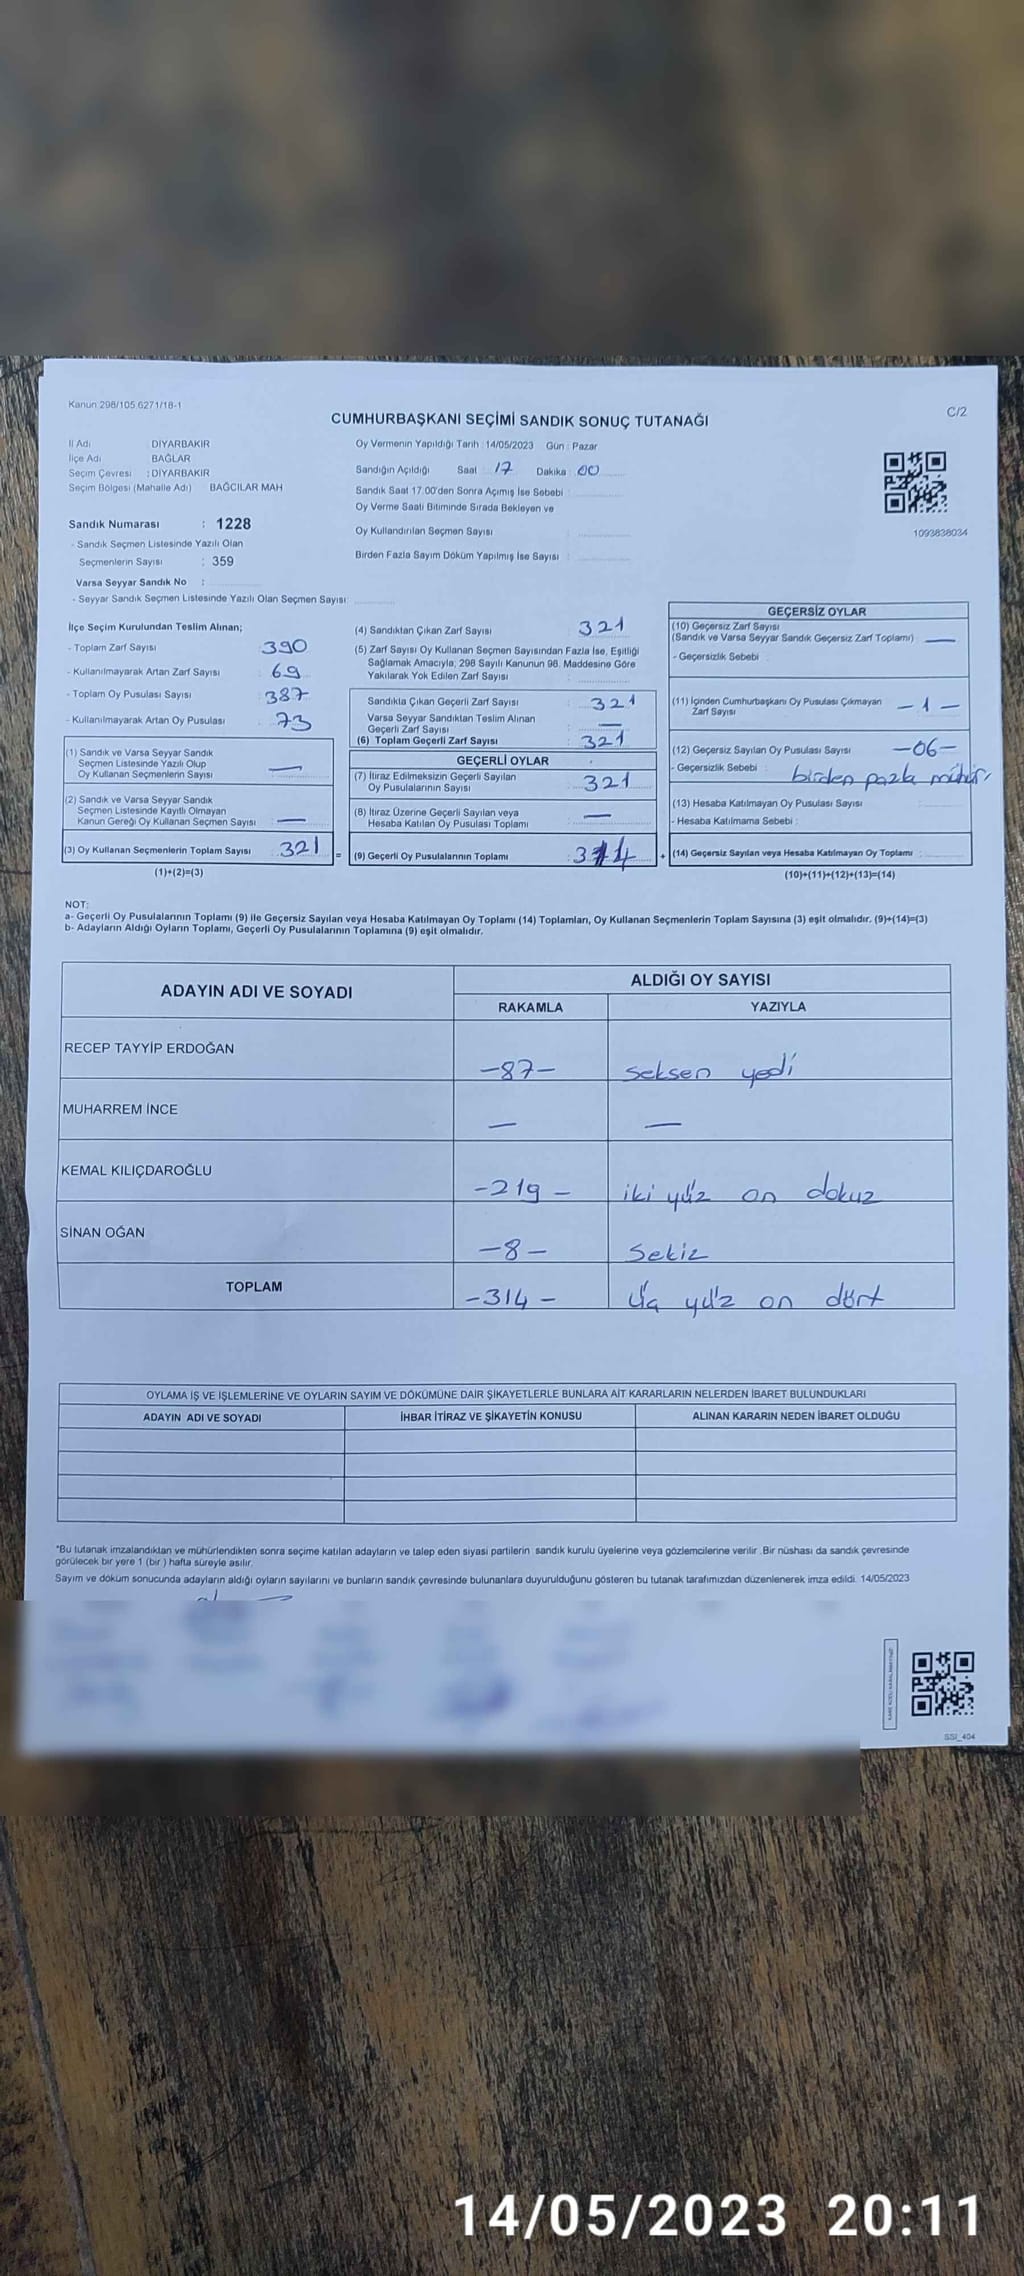 Kanun 298/105 6271/18-1
C/2
CUMHURBAŞKANI SEÇİMİ SANDIK SONUÇ TUTANAĞI
İl Adı : DİYARBAKIR
İlçe Adı : BAĞLAR
Seçim Çevresi : DİYARBAKIR
Seçim Bölgesi (Mahalle Adı) BAĞCILAR MAH
Oy Vermenin Yapıldığı Tarih : 14/05/2023 Gün : Pazar
Sandığın Açıldığı Saat : 17 Dakika : 00
Sandık Saat 17.00'den Sonra Açımış İse Sebebi :
Oy Verme Saati Bitiminde Sırada Bekleyen ve
Oy Kullandırılan Seçmen Sayısı :
Birden Fazla Sayım Döküm Yapılmış İse Sayısı :
1093838034
Sandık Numarası : 1228
- Sandık Seçmen Listesinde Yazılı Olan
Seçmenlerin Sayısı : 359
Varsa Seyyar Sandık No :
- Seyyar Sandık Seçmen Listesinde Yazılı Olan Seçmen Sayısı:
İlçe Seçim Kurulundan Teslim Alınan;
- Toplam Zarf Sayısı : 390
- Kullanılmayarak Artan Zarf Sayısı : 69
- Toplam Oy Pusulası Sayısı : 387
- Kullanılmayarak Artan Oy Pusulası : 73
(1) Sandık ve Varsa Seyyar Sandık
Seçmen Listesinde Yazılı Olup
Oy Kullanan Seçmenlerin Sayısı : —
(2) Sandık ve Varsa Seyyar Sandık
Seçmen Listesinde Kayıtlı Olmayan
Kanun Gereği Oy Kullanan Seçmen Sayısı : —
(3) Oy Kullanan Seçmenlerin Toplam Sayısı : 321 =
(1)+(2)=(3)
(4) Sandıktan Çıkan Zarf Sayısı : 321
(5) Zarf Sayısı Oy Kullanan Seçmen Sayısından Fazla İse, Eşitliği
Sağlamak Amacıyla; 298 Sayılı Kanunun 98. Maddesine Göre
Yakılarak Yok Edilen Zarf Sayısı :
Sandıkta Çıkan Geçerli Zarf Sayısı : 321
Varsa Seyyar Sandıktan Teslim Alınan
Geçerli Zarf Sayısı : —
(6) Toplam Geçerli Zarf Sayısı : 321
GEÇERLİ OYLAR
(7) İtiraz Edilmeksizin Geçerli Sayılan
Oy Pusulalarının Sayısı : 321
(8) İtiraz Üzerine Geçerli Sayılan veya
Hesaba Katılan Oy Pusulası Toplamı : —
(9) Geçerli Oy Pusulalarının Toplamı : 314 +
GEÇERSİZ OYLAR
(10) Geçersiz Zarf Sayısı
(Sandık ve Varsa Seyyar Sandık Geçersiz Zarf Toplamı) : —
- Geçersizlik Sebebi :
(11) İçinden Cumhurbaşkanı Oy Pusulası Çıkmayan
Zarf Sayısı — 1 —
(12) Geçersiz Sayılan Oy Pusulası Sayısı —06—
- Geçersizlik Sebebi : birden fazla mühür
(13) Hesaba Katılmayan Oy Pusulası Sayısı :
- Hesaba Katılmama Sebebi :
(14) Geçersiz Sayılan veya Hesaba Katılmayan Oy Toplamı :
(10)+(11)+(12)+(13)=(14)
NOT:
a- Geçerli Oy Pusulalarının Toplamı (9) ile Geçersiz Sayılan veya Hesaba Katılmayan Oy Toplamı (14) Toplamları, Oy Kullanan Seçmenlerin Toplam Sayısına (3) eşit olmalıdır. (9)+(14)=(3)
b- Adayların Aldığı Oyların Toplamı, Geçerli Oy Pusulalarının Toplamına (9) eşit olmalıdır.
ADAYIN ADI VE SOYADI
ALDIĞI OY SAYISI
RAKAMLA YAZIYLA
RECEP TAYYİP ERDOĞAN —87— seksen yedi
MUHARREM İNCE — —
KEMAL KILIÇDAROĞLU —219— iki yüz on dokuz
SİNAN OĞAN —8— Sekiz
TOPLAM —314— Üç yüz on dört
OYLAMA İŞ VE İŞLEMLERİNE VE OYLARIN SAYIM VE DÖKÜMÜNE DAİR ŞİKAYETLERLE BUNLARA AİT KARARLARIN NELERDEN İBARET BULUNDUKLARI
ADAYIN ADI VE SOYADI İHBAR İTİRAZ VE ŞİKAYETİN KONUSU ALINAN KARARIN NEDEN İBARET OLDUĞU
*Bu tutanak imzalandıktan ve mühürlendikten sonra seçime katılan adayların ve talep eden siyasi partilerin sandık kurulu üyelerine veya gözlemcilerine verilir. Bir nüshası da sandık çevresinde
görülecek bir yere 1 (bir ) hafta süreyle asılır.
Sayım ve döküm sonucunda adayların aldığı oyların sayılarını ve bunların sandık çevresinde bulunanlara duyurulduğunu gösteren bu tutanak tarafımızdan düzenlenerek imza edildi. 14/05/2023
SSİ_404
14/05/2023 20:11